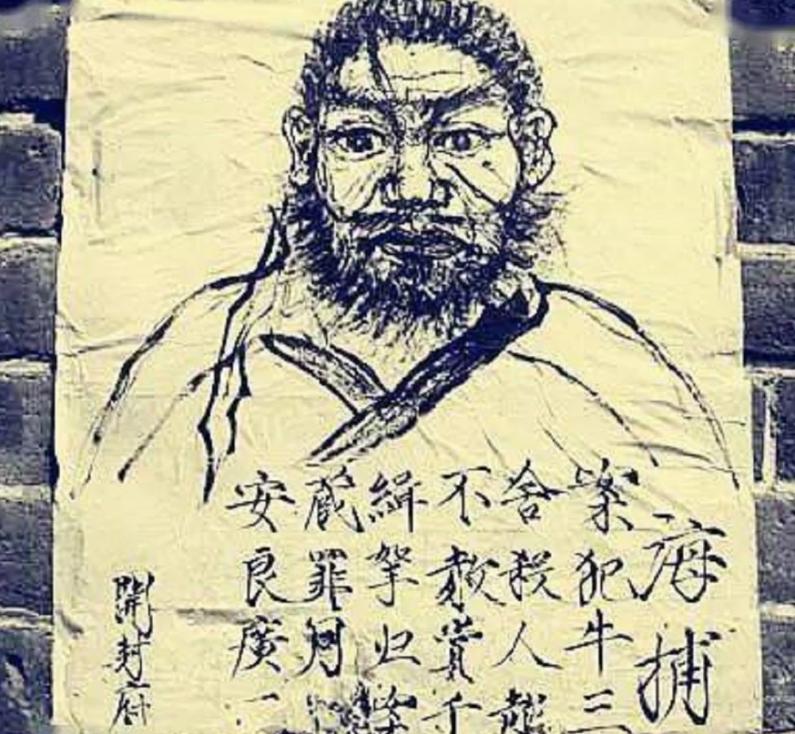 海捕
案犯牛二
舍殺人
不赦賞千
緝拏归案
藏罪同
安良廣一
開封府